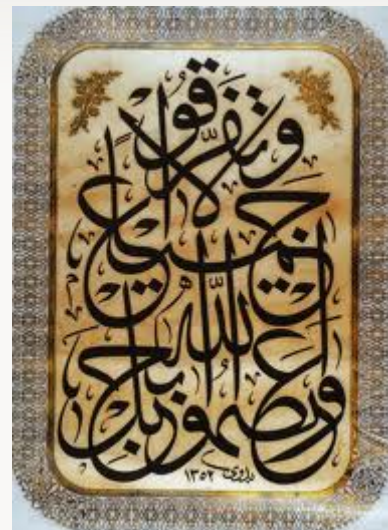 واعتصموا بحبل
الله جميعا
ولا تفرقوا
بدوي ١٣٥٢